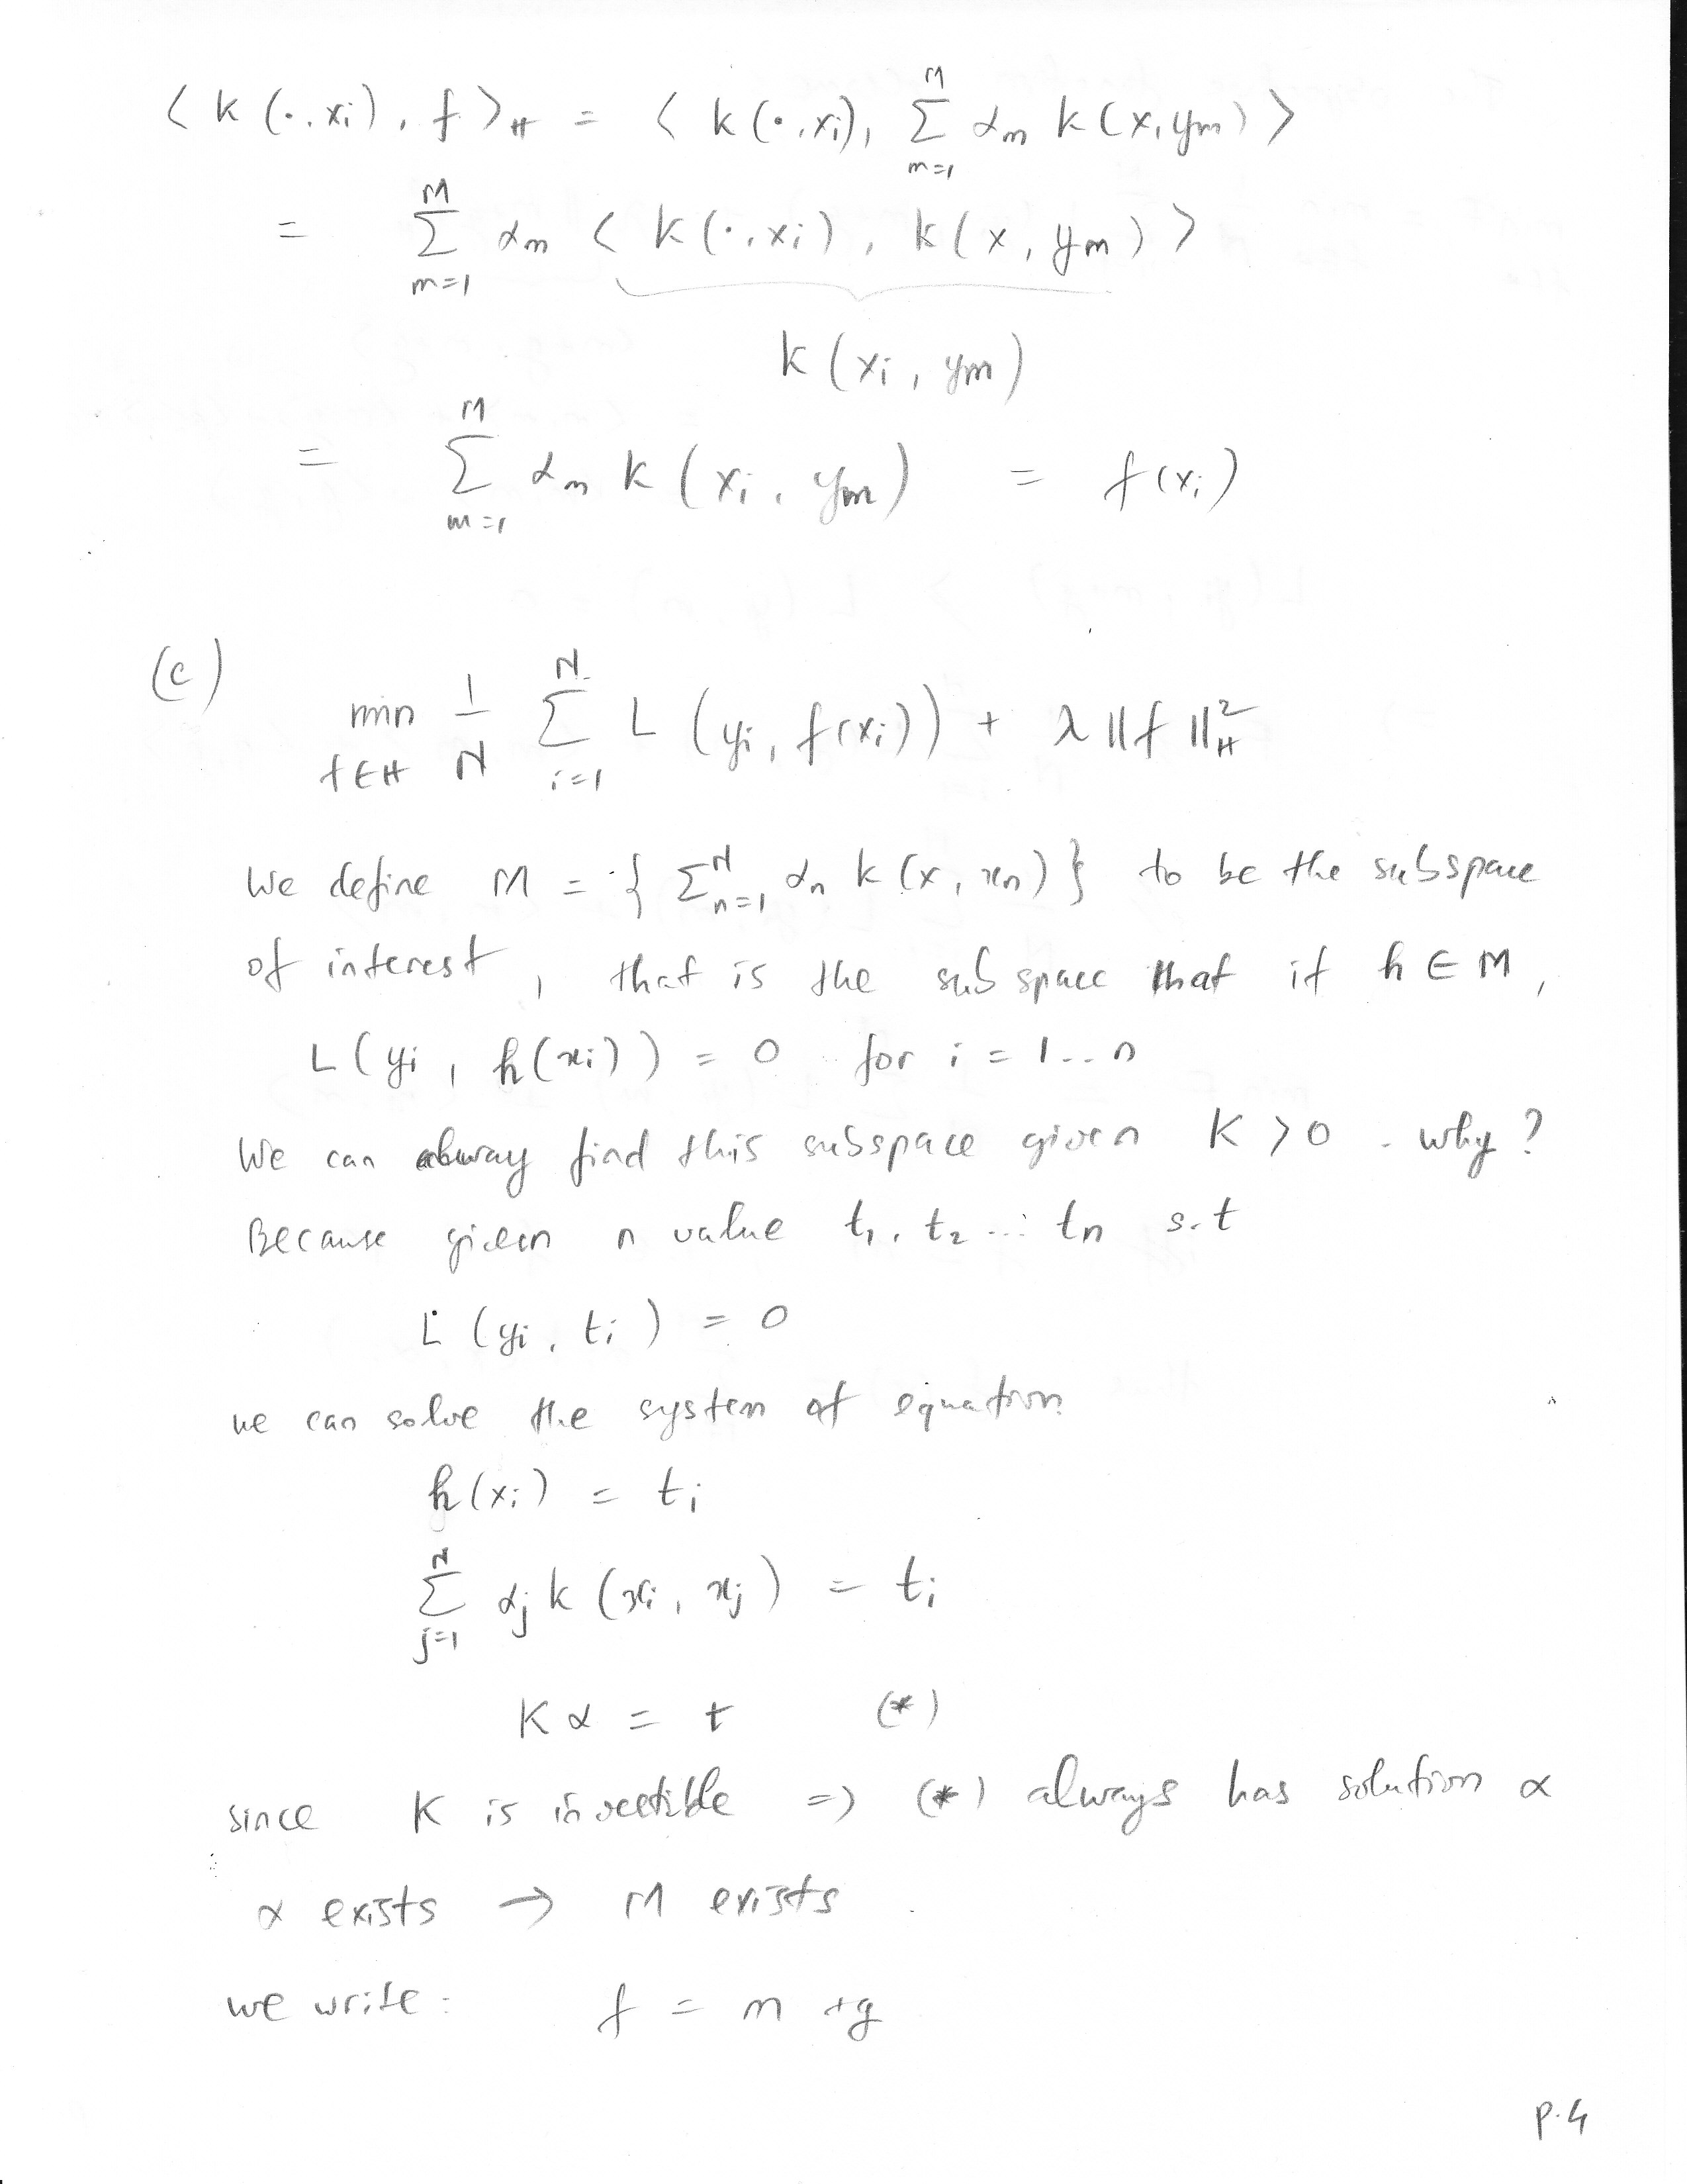 ⟨ k (·, xi), f ⟩H = ⟨ k (·, xi), Σ_{m=1}^{M} αm k (x, ym) ⟩
= Σ_{m=1}^{M} αm ⟨ k (·, xi), k (x, ym) ⟩
k (xi, ym)
= Σ_{m=1}^{M} αm k (xi, ym) = f(xi)
(c)
min_{f∈H} 1/N Σ_{i=1}^{N} L (yi, f(xi)) + λ ||f||²_H
We define M = { Σ_{n=1}^{N} αn k (x, xn) } to be the subspace
of interest, that is the subspace that if h ∈ M,
L (yi, h(xi)) = 0 for i = 1...n
We can alway find this subspace given K > 0. why?
Because given n value t1, t2 ... tn s.t
L (yi, ti) = 0
we can solve the system of equation
h(xi) = ti
Σ_{j=1}^{N} αj k (xi, xj) = ti
K α = t (*)
since K is invertible => (*) always has solution α
α exists → M exists
we write: f = m + g
p.4